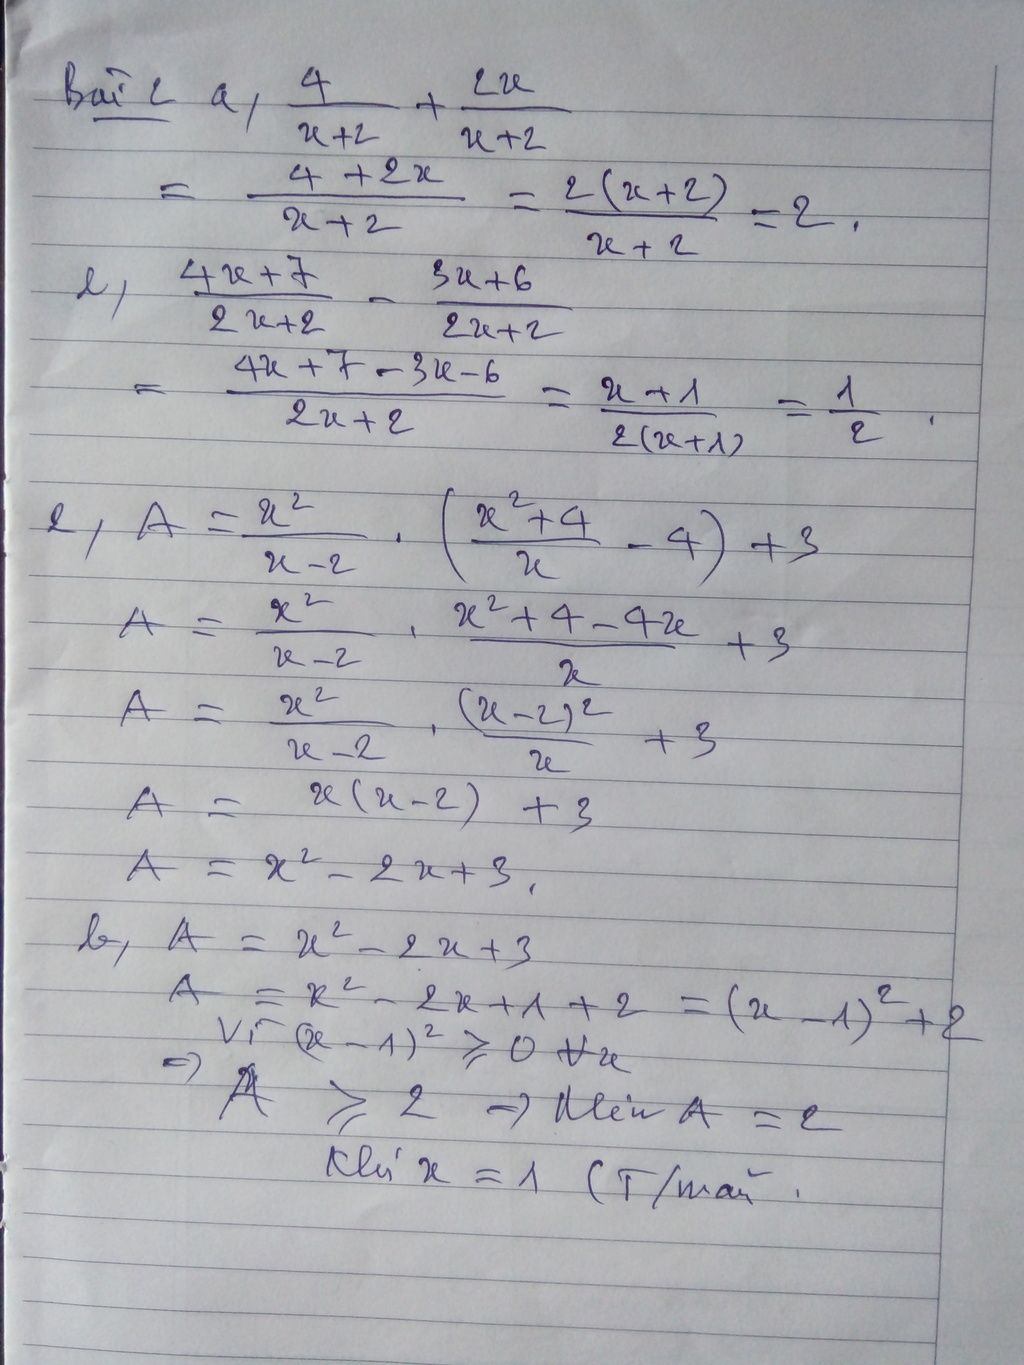 Bài 2 a, 4/(x+2) + 2x/(x+2)
= (4 + 2x)/(x + 2) = 2(x+2)/(x + 2) = 2.
b, (4x+7)/(2x+2) - (3x+6)/(2x+2)
= (4x + 7 - 3x - 6)/(2x + 2) = (x + 1)/(2(x+1)) = 1/2.
2, A = x²/(x-2) . ((x²+4)/x - 4) + 3
A = x²/(x-2) . (x² + 4 - 4x)/x + 3
A = x²/(x-2) . (x-2)²/x + 3
A = x(x-2) + 3
A = x² - 2x + 3.
b, A = x² - 2x + 3
A = x² - 2x + 1 + 2 = (x - 1)² + 2
Vì (x - 1)² ⩾ 0 ∀x
⇒ A ⩾ 2 → Min A = 2
Khi x = 1 (T/mãn.